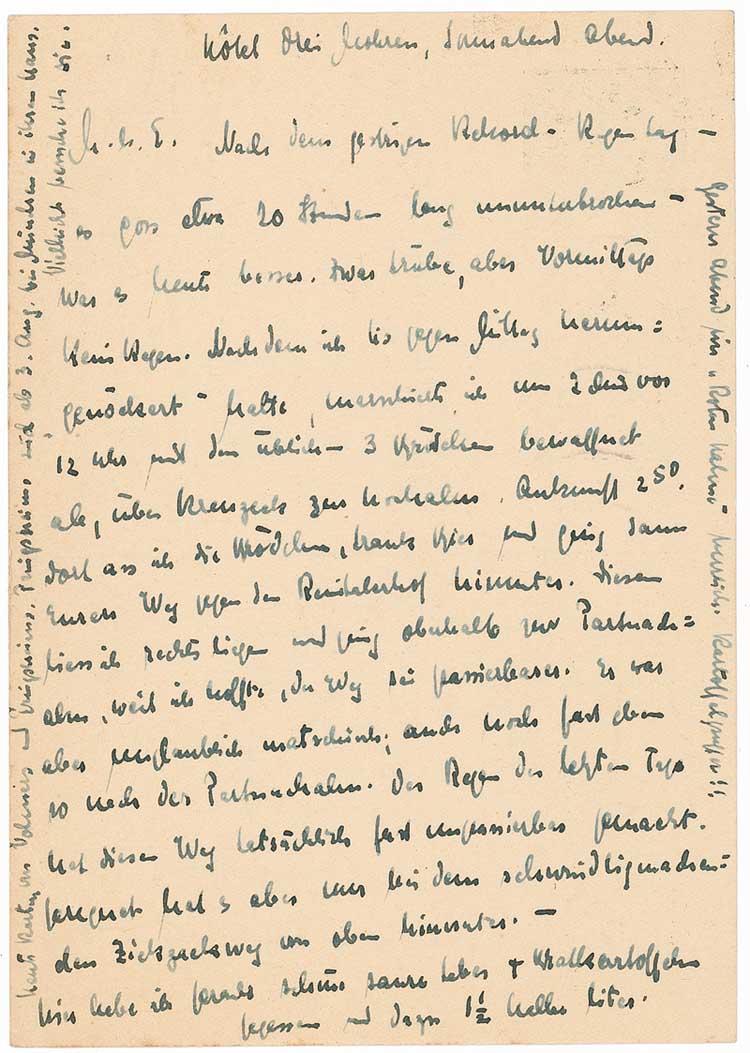 Hôtel Drei Mohren, Sonnabend Abend.
M. l. E. Nach dem gestrigen Rekord-Regentag –
es goss etwa 20 Stunden lang ununterbrochen –
war es heute besser. Zwar trübe, aber Vormittags
kein Regen. Nachdem ich bis gegen Mittag herum=
genöckert hatte, marschierte ich um vor
12 Uhr mit den üblichen 3 Brödchen bewaffnet
ab, über Kreuzeck zur Hochalm. Ankunft 2 50.
Dort ass ich die Brödchen, trank Bier und ging dann
Euren Weg gegen den Reintalerhof hinunter. Diesen
liess ich rechts liegen und ging oberhalb zur Partnach=
alm, weil ich hoffte, der Weg sei passierbarer. Es war
aber unglaublich matschig; auch noch fast eben
so nach der Partnachalm. Der Regen der letzten Tage
hat diesen Weg tatsächlich fast unpassierbar gemacht.
geregnet hat es aber nur bei dem schwindligmachen=
den Zickzackweg von oben hinunter. –
Hier habe ich gerade schöne saure Leber + Bratkartoffeln
gegessen und dazu 1 1/2 halbe Liter.
Gestern Abend im "Roten Hahn" herrliche Kartoffelpuffer!!
Heute Karte von Pringsheims. Pringsheims sind ab 3. Aug. bei München in ihrem Haus.
Vielleicht besuche ich sie.